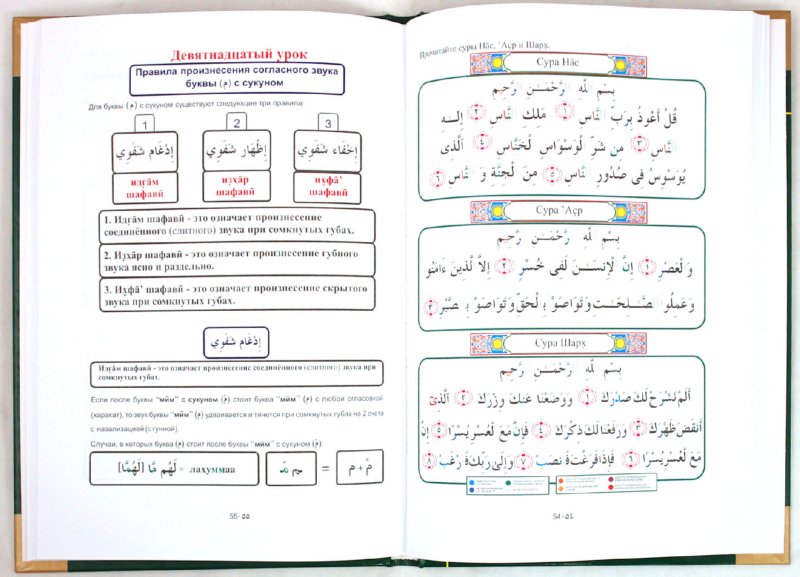 Девятнадцатый урок
Правила произнесения согласного звука
буквы (م) с сукуном
Для буквы (م) с сукуном существуют следующие три правила:
1
2
3
إِدْغَام شَفَوِي
إِظْهَار شَفَوِي
إِخْفَاء شَفَوِي
идғāм
шафавӣ
изҳāр
шафавӣ
ихфā’
шафавӣ
1. Идғāм шафавӣ - это означает произнесение
соединённого (слитного) звука при сомкнутых губах.
2. Изҳāр шафавӣ - это означает произнесение губного
звука ясно и раздельно.
3. Ихфā’ шафавӣ - это означает произнесение скрытого
звука при сомкнутых губах.
إِدْغَام شَفَوِي
Идғāм шафавӣ - это означает произнесение соединённого (слитного) звука при
сомкнутых губах.
Если после буквы "мӣм" с сукуном (مْ) стоит буква "мӣм" (م) с любой огласовкой
(харакат), то звук буквы "мӣм" (م) удваивается и тянется при сомкнутых губах на 2 счета
с назализацией (с гунной).
Случаи, в которых буква (م) стоит после буквы "мӣм" с сукуном (مْ).
[لَهُمَّا] لَهُم مَّا = лахуммаа
م مّـ
=
مْ + م
55-٥٥
Прочитайте суры Нāс, ’Аср и Шарҳ.
Сура Нāс
بِسْمِ ٱللَّهِ ٱلرَّحْمَـٰنِ ٱلرَّحِيمِ
قُلْ أَعُوذُ بِرَبِّ ٱلنَّاسِ ١ مَلِكِ ٱلنَّاسِ ٢ إِلَـٰهِ
ٱلنَّاسِ ٣ مِن شَرِّ ٱلْوَسْوَاسِ ٱلْخَنَّاسِ ٤ ٱلَّذِى
يُوَسْوِسُ فِى صُدُورِ ٱلنَّاسِ ٥ مِنَ ٱلْجِنَّةِ وَ ٱلنَّاسِ ٦
Сура ’Аср
بِسْمِ ٱللَّهِ ٱلرَّحْمَـٰنِ ٱلرَّحِيمِ
وَ ٱلْعَصْرِ ١ إِنَّ ٱلْإِنسَـٰنَ لَفِى خُسْرٍ ٢ إِلَّا ٱلَّذِينَ ءَامَنُوا
وَعَمِلُوا ٱلصَّـٰلِحَـٰتِ وَتَوَاصَوْا بِٱلْحَقِّ وَتَوَاصَوْا بِٱلصَّبْرِ ٣
Сура Шарҳ
بِسْمِ ٱللَّهِ ٱلرَّحْمَـٰنِ ٱلرَّحِيمِ
أَلَمْ نَشْرَحْ لَكَ صَدْرَكَ ١ وَوَضَعْنَا عَنكَ وِزْرَكَ ٢ ٱلَّذِىٓ
أَنقَضَ ظَهْرَكَ ٣ وَرَفَعْنَا لَكَ ذِكْرَكَ ٤ فَإِنَّ مَعَ ٱلْعُسْرِ يُسْرًا ٥ إِنَّ
مَعَ ٱلْعُسْرِ يُسْرًا ٦ فَإِذَا فَرَغْتَ فَٱنصَبْ ٧ وَإِلَىٰ رَبِّكَ فَٱرْغَب ٨
54-٥٤